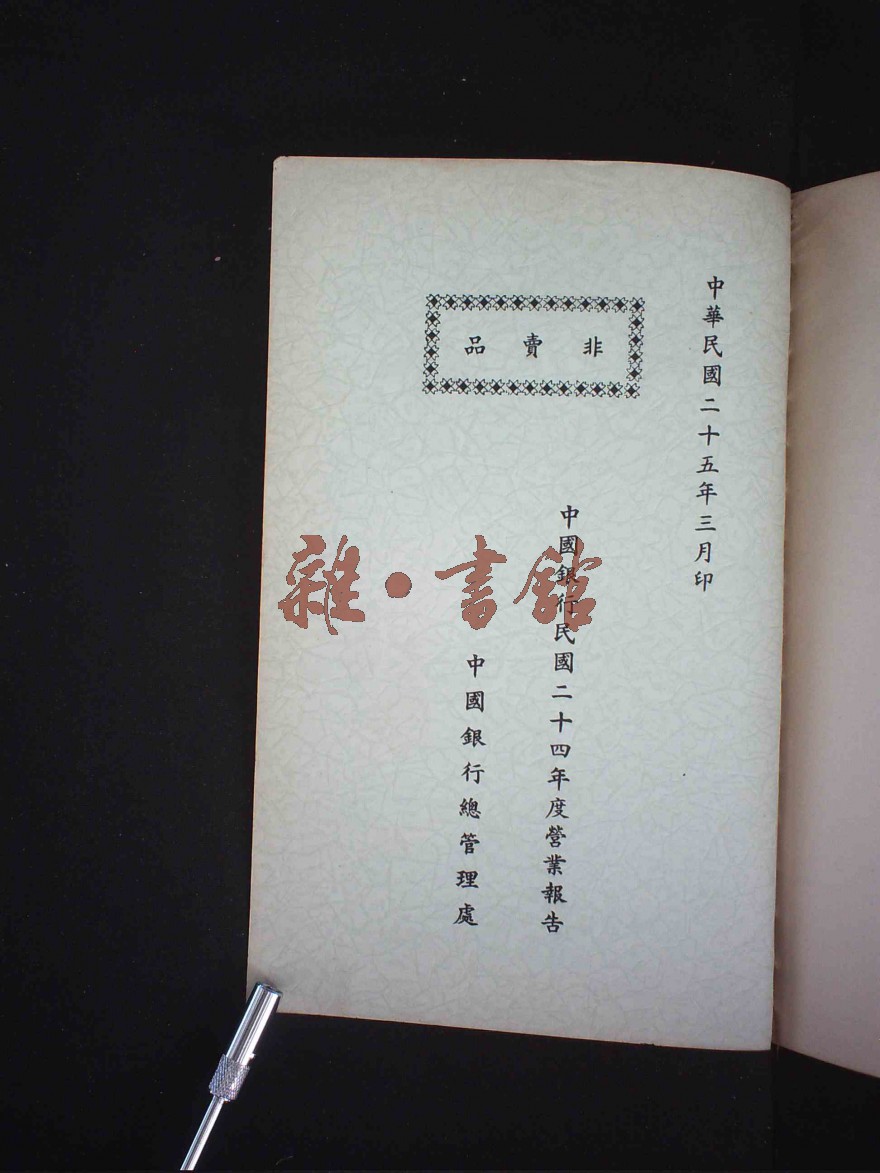 中華民國二十五年三月印
非賣品
中國銀行民國二十四年度營業報告
中國銀行總管理處
雜·書館